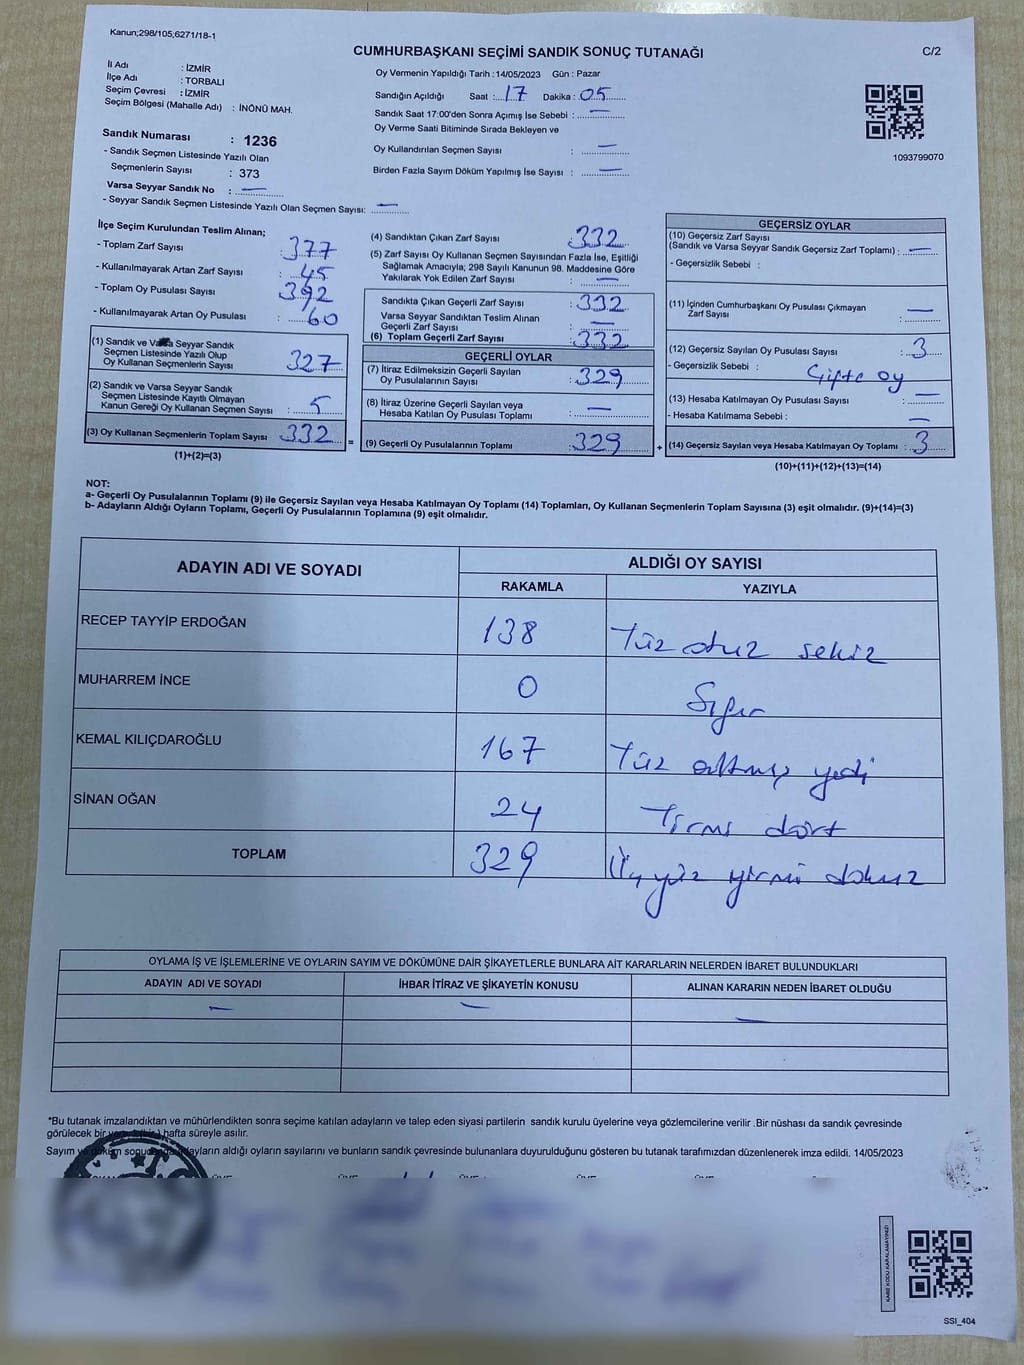 Kanun;298/105;6271/18-1
CUMHURBAŞKANI SEÇİMİ SANDIK SONUÇ TUTANAĞI
C/2
İl Adı : İZMİR
İlçe Adı : TORBALI
Seçim Çevresi : İZMİR
Seçim Bölgesi (Mahalle Adı) : İNÖNÜ MAH.
Oy Vermenin Yapıldığı Tarih : 14/05/2023 Gün : Pazar
Sandığın Açıldığı Saat : 17 Dakika : 05
Sandık Saat 17:00'den Sonra Açımış İse Sebebi : —
Oy Verme Saati Bitiminde Sırada Bekleyen ve
Oy Kullandırılan Seçmen Sayısı : —
Birden Fazla Sayım Döküm Yapılmış İse Sayısı : —
1093799070
Sandık Numarası : 1236
- Sandık Seçmen Listesinde Yazılı Olan
Seçmenlerin Sayısı : 373
Varsa Seyyar Sandık No : —
- Seyyar Sandık Seçmen Listesinde Yazılı Olan Seçmen Sayısı: —
İlçe Seçim Kurulundan Teslim Alınan;
- Toplam Zarf Sayısı : 377
- Kullanılmayarak Artan Zarf Sayısı : 45
- Toplam Oy Pusulası Sayısı : 392
- Kullanılmayarak Artan Oy Pusulası : 60
(1) Sandık ve Varsa Seyyar Sandık
Seçmen Listesinde Yazılı Olup
Oy Kullanan Seçmenlerin Sayısı : 327
(2) Sandık ve Varsa Seyyar Sandık
Seçmen Listesinde Kayıtlı Olmayan
Kanun Gereği Oy Kullanan Seçmen Sayısı : 5
(3) Oy Kullanan Seçmenlerin Toplam Sayısı : 332 =
(1)+(2)=(3)
(4) Sandıktan Çıkan Zarf Sayısı : 332
(5) Zarf Sayısı Oy Kullanan Seçmen Sayısından Fazla İse, Eşitliği
Sağlamak Amacıyla; 298 Sayılı Kanunun 98. Maddesine Göre
Yakılarak Yok Edilen Zarf Sayısı : —
Sandıkta Çıkan Geçerli Zarf Sayısı : 332
Varsa Seyyar Sandıktan Teslim Alınan
Geçerli Zarf Sayısı : —
(6) Toplam Geçerli Zarf Sayısı : 332
GEÇERLİ OYLAR
(7) İtiraz Edilmeksizin Geçerli Sayılan
Oy Pusulalarının Sayısı : 329
(8) İtiraz Üzerine Geçerli Sayılan veya
Hesaba Katılan Oy Pusulası Toplamı : —
(9) Geçerli Oy Pusulalarının Toplamı : 329 +
GEÇERSİZ OYLAR
(10) Geçersiz Zarf Sayısı
(Sandık ve Varsa Seyyar Sandık Geçersiz Zarf Toplamı) : —
- Geçersizlik Sebebi :
(11) İçinden Cumhurbaşkanı Oy Pusulası Çıkmayan
Zarf Sayısı : —
(12) Geçersiz Sayılan Oy Pusulası Sayısı : 3
- Geçersizlik Sebebi : Çifte oy
(13) Hesaba Katılmayan Oy Pusulası Sayısı : —
- Hesaba Katılmama Sebebi : —
(14) Geçersiz Sayılan veya Hesaba Katılmayan Oy Toplamı : 3
(10)+(11)+(12)+(13)=(14)
NOT:
a- Geçerli Oy Pusulalarının Toplamı (9) ile Geçersiz Sayılan veya Hesaba Katılmayan Oy Toplamı (14) Toplamları, Oy Kullanan Seçmenlerin Toplam Sayısına (3) eşit olmalıdır. (9)+(14)=(3)
b- Adayların Aldığı Oyların Toplamı, Geçerli Oy Pusulalarının Toplamına (9) eşit olmalıdır.
ADAYIN ADI VE SOYADI ALDIĞI OY SAYISI
RAKAMLA YAZIYLA
RECEP TAYYİP ERDOĞAN 138 Yüz otuz sekiz
MUHARREM İNCE 0 Sıfır
KEMAL KILIÇDAROĞLU 167 Yüz altmış yedi
SİNAN OĞAN 24 Yirmi dört
TOPLAM 329 Üç yüz yirmi dokuz
OYLAMA İŞ VE İŞLEMLERİNE VE OYLARIN SAYIM VE DÖKÜMÜNE DAİR ŞİKAYETLERLE BUNLARA AİT KARARLARIN NELERDEN İBARET BULUNDUKLARI
ADAYIN ADI VE SOYADI İHBAR İTİRAZ VE ŞİKAYETİN KONUSU ALINAN KARARIN NEDEN İBARET OLDUĞU
— — —
*Bu tutanak imzalandıktan ve mühürlendikten sonra seçime katılan adayların ve talep eden siyasi partilerin sandık kurulu üyelerine veya gözlemcilerine verilir .Bir nüshası da sandık çevresinde
görülecek bir yere (bir) hafta süreyle asılır.
Sayım ve döküm sonucunda adayların aldığı oyların sayılarını ve bunların sandık çevresinde bulunanlara duyurulduğunu gösteren bu tutanak tarafımızdan düzenlenerek imza edildi. 14/05/2023
ÜYE ÜYE ÜYE ÜYE
KARE KODU KARALAMAYINIZ!
SSI_404